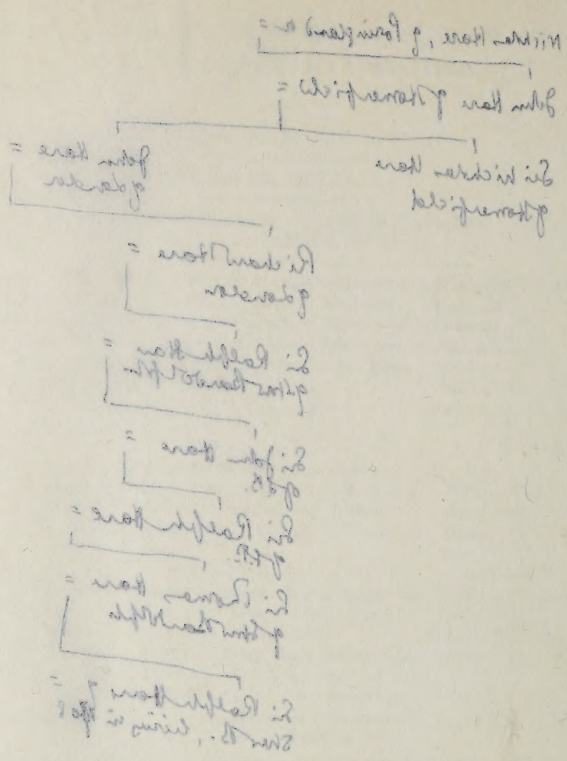 Nicholas Hare, of Poringland =
John Hare of Homersfield =
Sir Nicholas Hare
of Homersfield
John Hare =
of London
Richard Hare =
of London
Sir Ralph Hare =
of Stow Bardolph
Sir John Hare =
of S.B.
Sir Ralph Hare =
of S.B.
Sir Thomas Hare =
of Stow Bardolph
Sir Ralph Hare of =
Stow B., living in